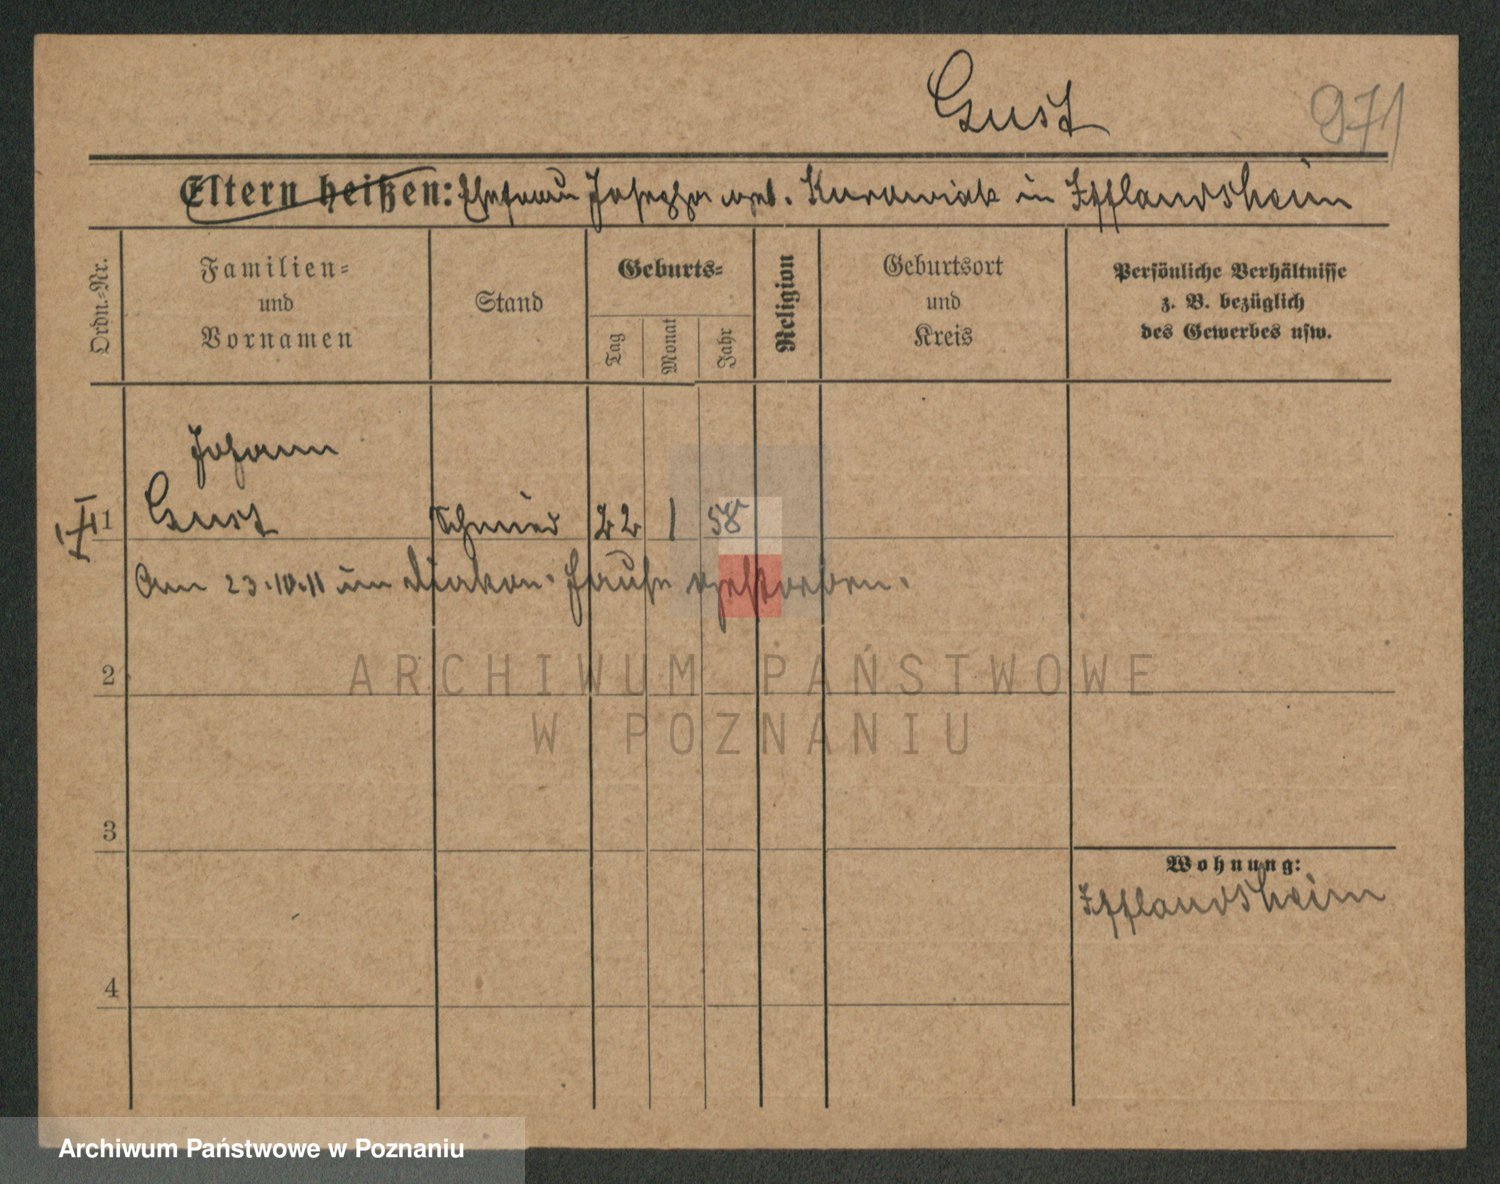 Gust
971
Eltern heißen: Ehefrau Josepha geb. Kurowiak in Ifflandsheim
Ordn.-Nr.
Familien-
und
Vornamen
Stand
Geburts-
Tag
Monat
Jahr
Religion
Geburtsort
und
Kreis
Persönliche Verhältnisse
z. B. bezüglich
des Gewerbes usw.
Johann
1 Gust Schmied 22 1 58
Am 23.10.11 im Diakon. Hause gestorben.
2
ARCHIWUM PAŃSTWOWE
W POZNANIU
3
Wohnung:
Ifflandsheim
4
Archiwum Państwowe w Poznaniu